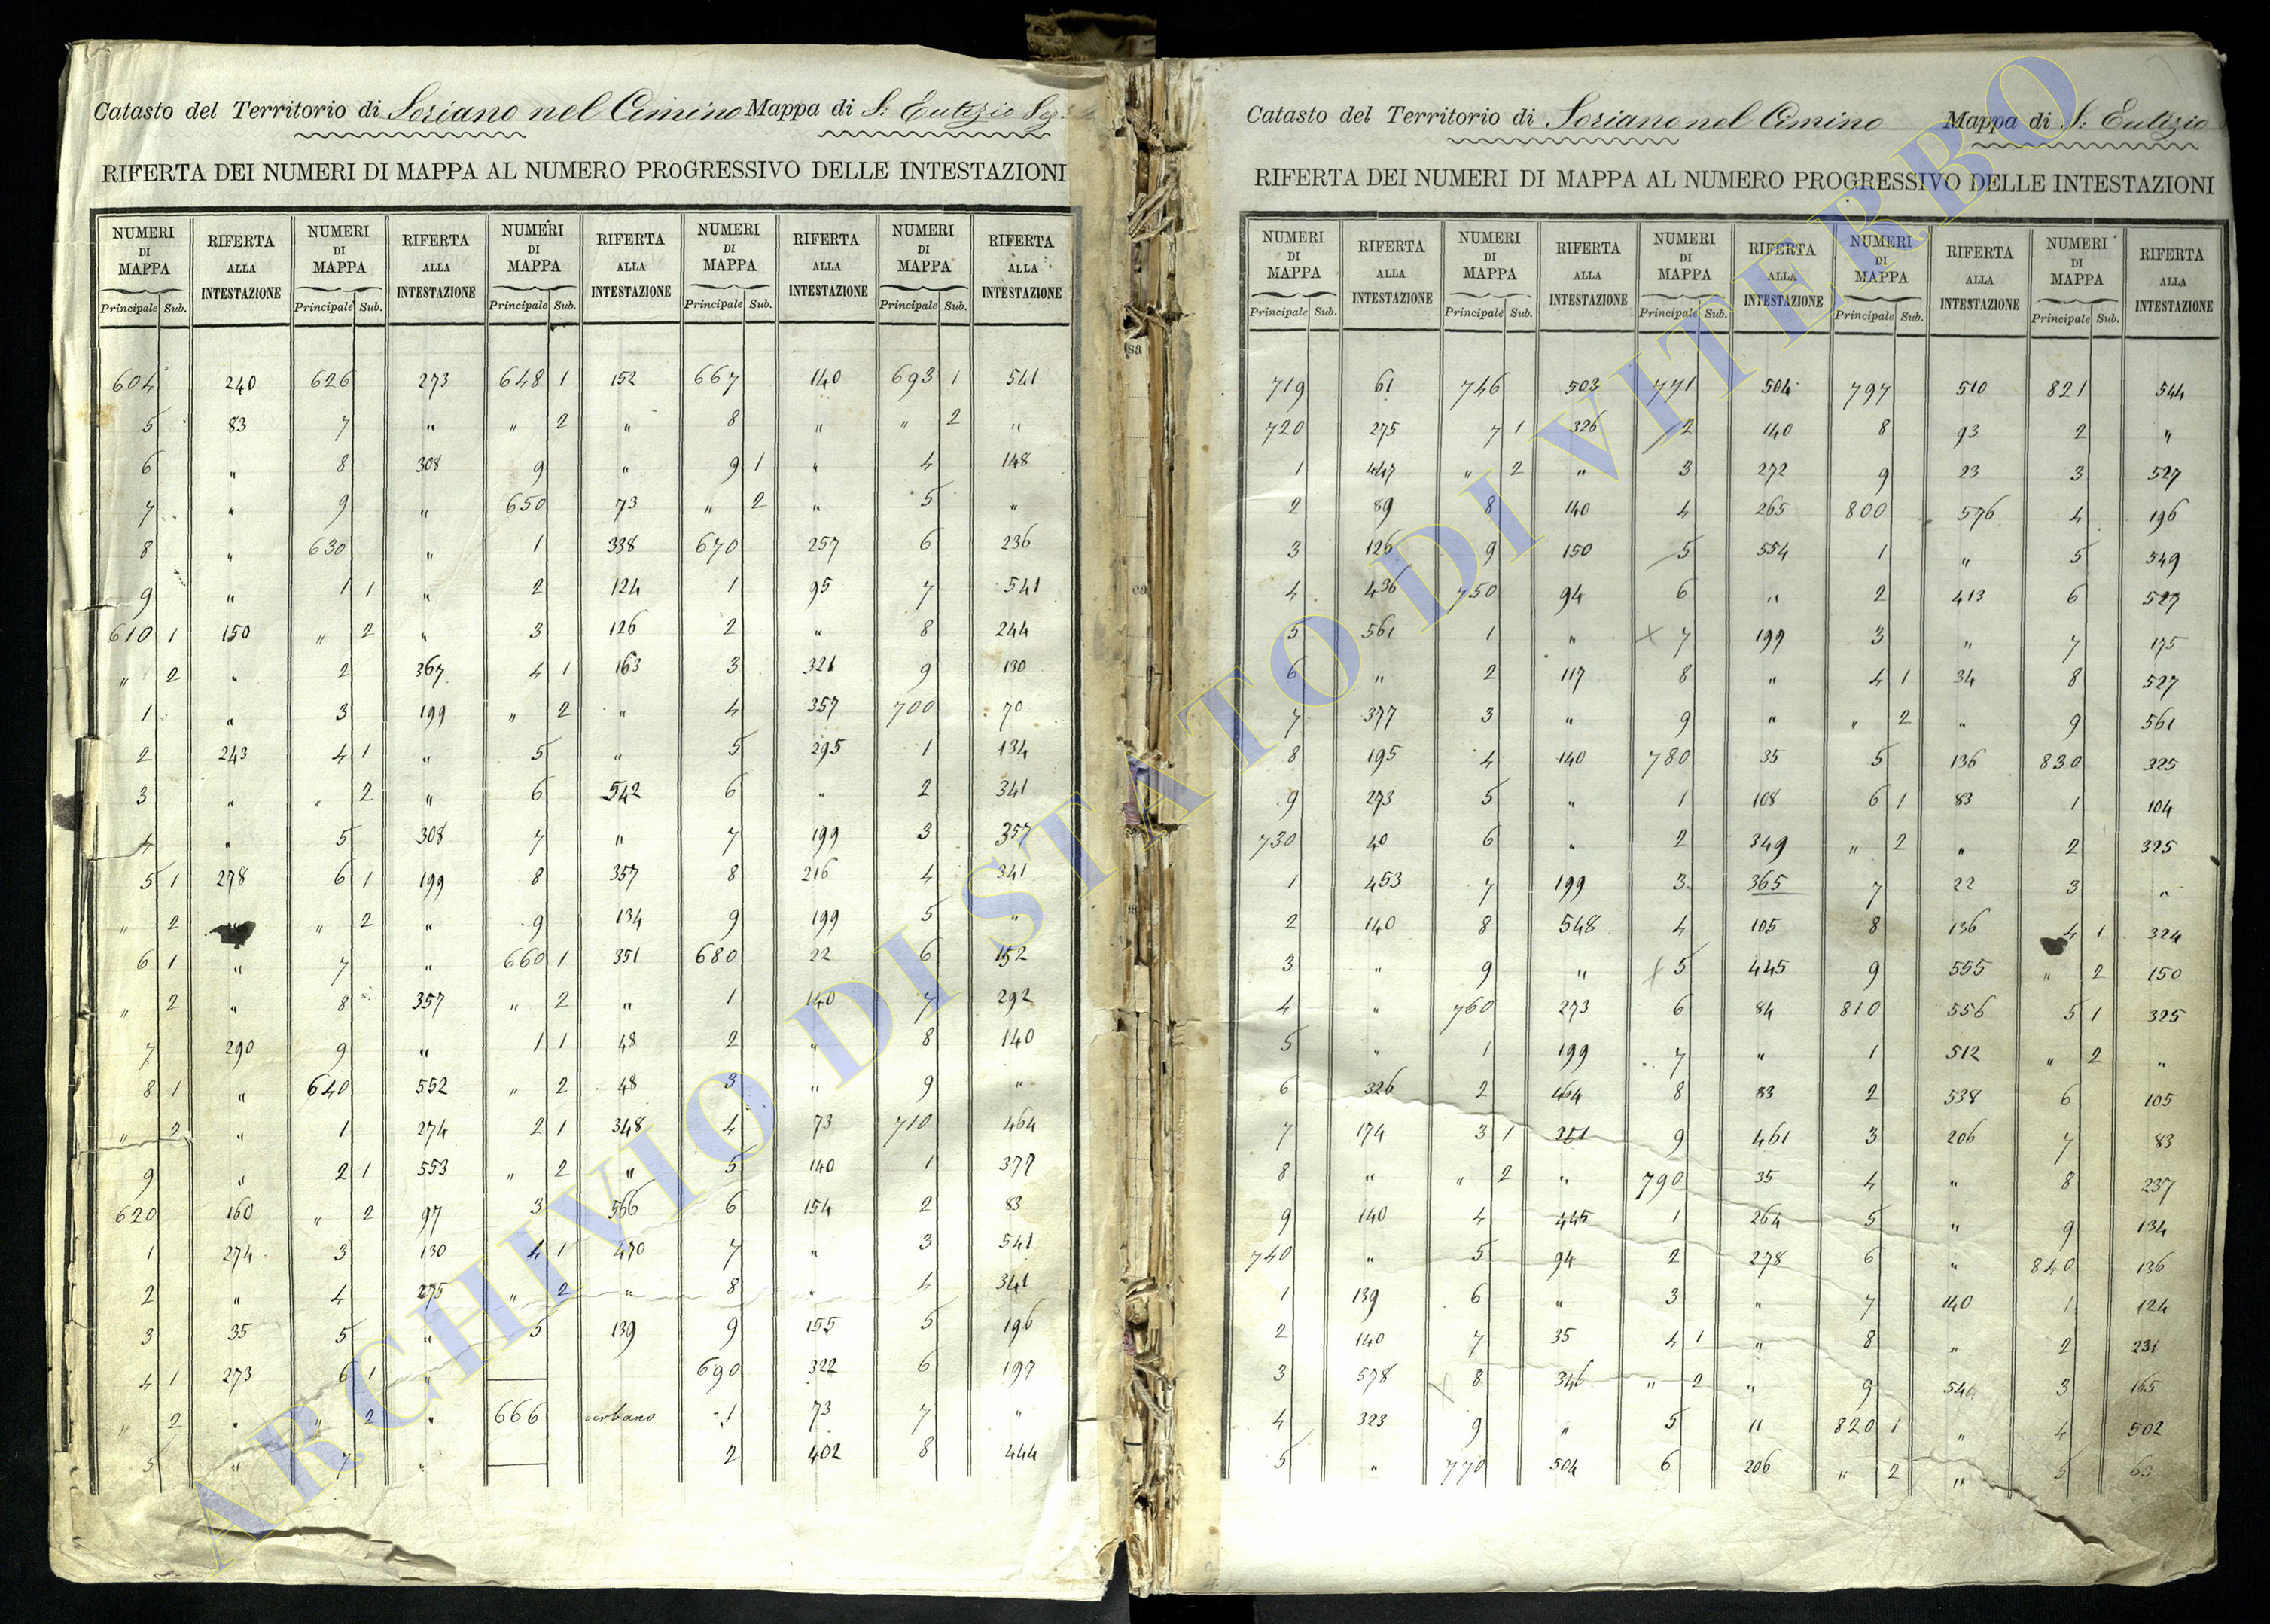 Catasto del Territorio di Soriano nel Cimino Mappa di S. Eutizio
RIFERTA DEI NUMERI DI MAPPA AL NUMERO PROGRESSIVO DELLE INTESTAZIONI
NUMERI DI MAPPA RIFERTA ALLA INTESTAZIONE NUMERI DI MAPPA RIFERTA ALLA INTESTAZIONE NUMERI DI MAPPA RIFERTA ALLA INTESTAZIONE NUMERI DI MAPPA RIFERTA ALLA INTESTAZIONE NUMERI DI MAPPA RIFERTA ALLA INTESTAZIONE
Principale Sub. Principale Sub. Principale Sub. Principale Sub. Principale Sub.
604 240 626 273 648 1 152 667 140 693 1 541
5 83 7 " " 2 " 8 " " 2 "
6 " 8 308 9 " 9 1 " 4 148
7 " 9 " 650 73 " 2 " 5 "
8 " 630 " 1 338 670 257 6 236
9 " 1 1 " 2 124 1 95 7 541
610 1 150 " 2 " 3 126 2 " 8 244
" 2 " 2 367 4 1 163 3 321 9 130
1 " 3 199 " 2 " 4 357 700 70
2 243 4 1 " 5 " 5 295 1 134
3 " " 2 " 6 542 6 " 2 341
4 " 5 308 7 " 7 199 3 357
5 1 278 6 1 199 8 357 8 216 4 341
" 2 " 2 " 9 134 9 199 5 "
6 1 " 7 " 660 1 351 680 22 6 152
" 2 " 8 357 " 2 " 1 140 7 292
7 290 9 " 1 1 48 2 " 8 140
8 1 " 640 552 " 2 48 3 " 9 "
" 2 " 1 274 2 1 348 4 73 710 464
9 " 2 1 553 " 2 " 5 140 1 377
620 160 " 2 97 3 566 6 154 2 83
1 274 3 130 4 1 470 7 " 3 541
2 " 4 275 " 2 " 8 " 4 341
3 35 5 " 5 139 9 155 5 196
4 1 273 6 1 " 690 322 6 197
" 2 " " 2 " 666 urbano 1 73 7 "
5 " 7 " 2 402 8 444
Catasto del Territorio di Soriano nel Cimino Mappa di S. Eutizio
RIFERTA DEI NUMERI DI MAPPA AL NUMERO PROGRESSIVO DELLE INTESTAZIONI
NUMERI DI MAPPA RIFERTA ALLA INTESTAZIONE NUMERI DI MAPPA RIFERTA ALLA INTESTAZIONE NUMERI DI MAPPA RIFERTA ALLA INTESTAZIONE NUMERI DI MAPPA RIFERTA ALLA INTESTAZIONE NUMERI DI MAPPA RIFERTA ALLA INTESTAZIONE
Principale Sub. Principale Sub. Principale Sub. Principale Sub. Principale Sub.
719 61 746 503 771 504 797 510 821 544
720 275 7 1 326 2 140 8 93 2 "
1 447 " 2 " 3 272 9 23 3 527
2 89 8 140 4 265 800 576 4 196
3 126 9 150 5 554 1 " 5 549
4 436 750 94 6 " 2 413 6 527
5 561 1 " x 7 199 3 " 7 175
6 " 2 117 8 " 4 1 34 8 527
7 377 3 " 9 " " 2 " 9 561
8 195 4 140 780 35 5 136 830 325
9 273 5 " 1 108 6 1 83 1 104
730 40 6 " 2 349 " 2 " 2 325
1 453 7 199 3 365 7 22 3 "
2 140 8 548 4 105 8 136 4 1 324
3 " 9 " x 5 445 9 555 " 2 150
4 " 760 273 6 84 810 556 5 1 325
5 " 1 199 7 " 1 512 " 2 "
6 326 2 464 8 83 2 538 6 105
7 174 3 1 351 9 461 3 206 7 83
8 " " 2 " 790 35 4 " 8 237
9 140 4 445 1 264 5 " 9 134
740 " 5 94 2 278 6 " 840 136
1 139 6 " 3 " 7 140 1 124
2 140 7 35 4 1 " 8 " 2 231
3 578 x 8 346 " 2 " 9 544 3 165
4 323 9 " 5 11 820 1 " 4 502
5 " 770 504 6 206 " 2 " 5 63
ARCHIVIO DI STATO DI VITERBO